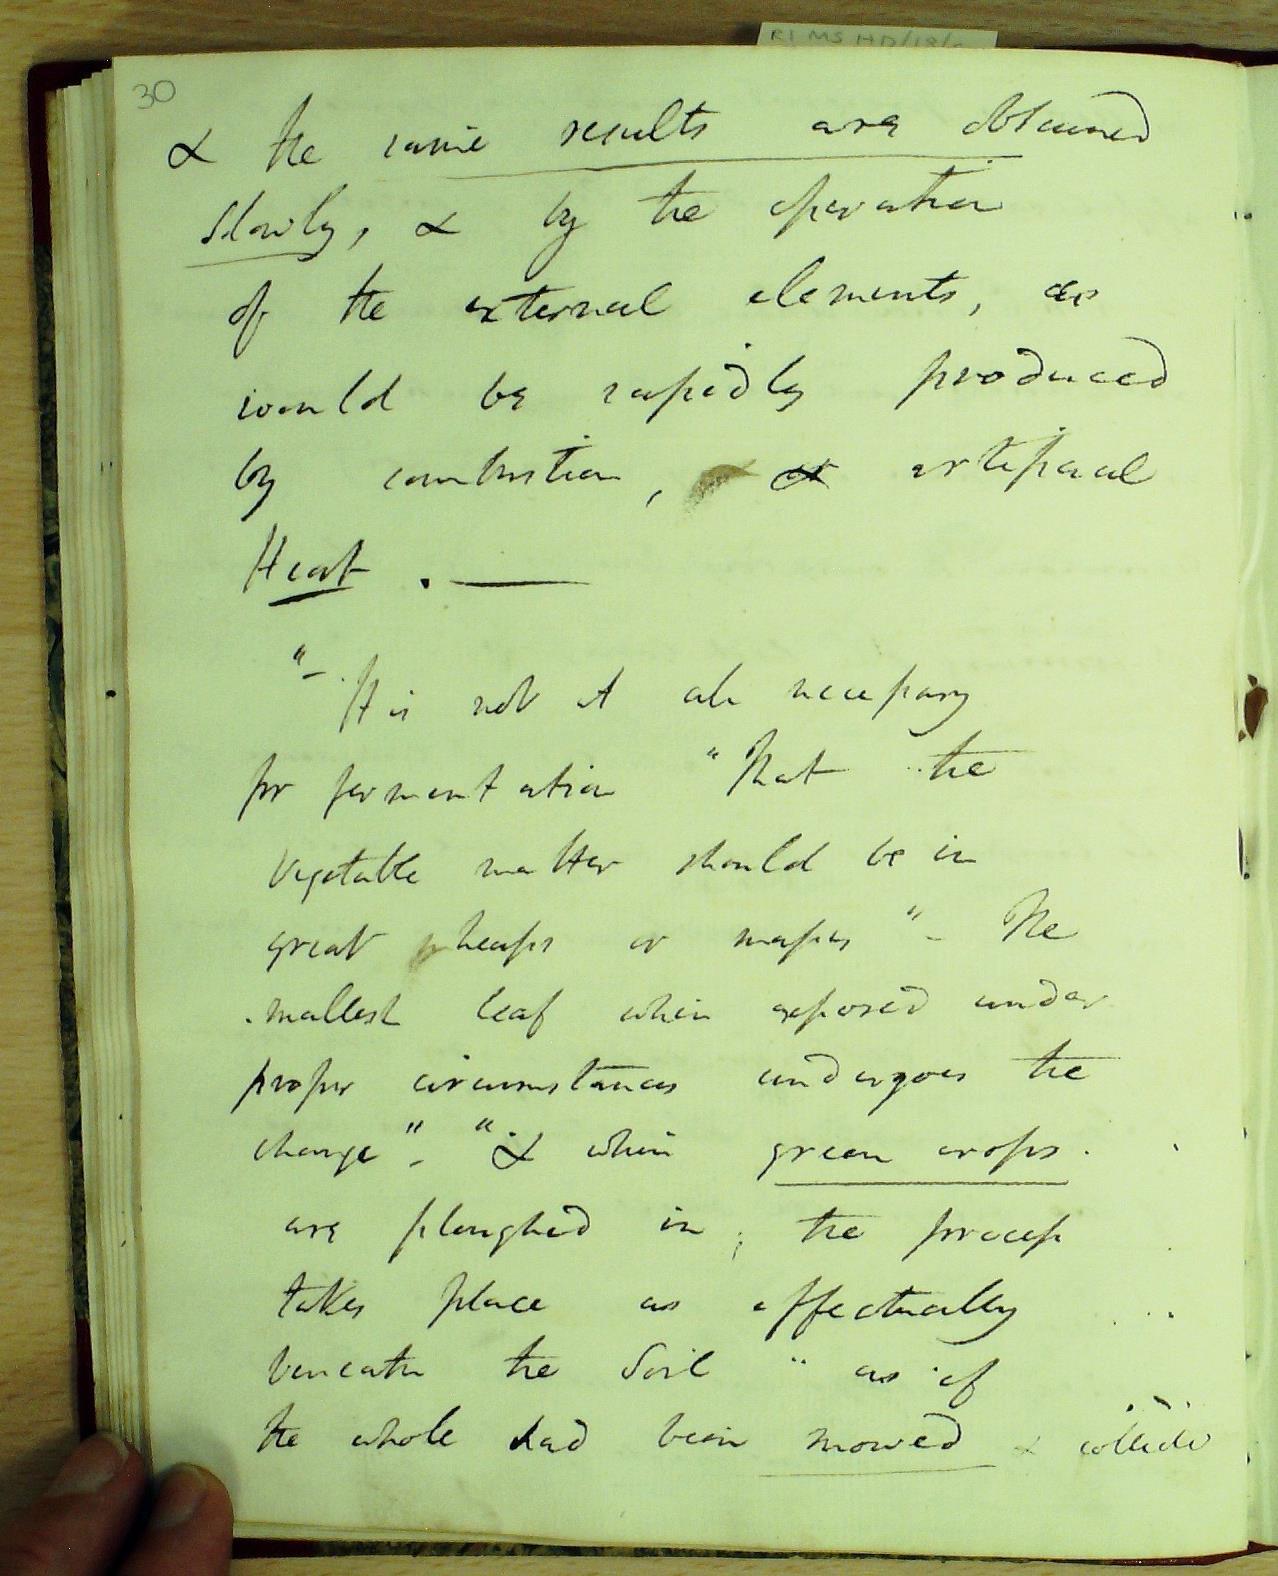 RI MS HD/13/
30
& the same results are obtained
Slowly, & by the operation
of the external elements, as
would be rapidly produced
by combustion, or artificial
Heat. —
"– It is not at all necessary
for fermentation "That the
vegetable matter should be in
great heaps or masses" – The
smallest leaf when exposed under
proper circumstances undergoes the
change". "& when green crops
are ploughed in, the process
takes place as effectually
beneath the Soil " as if
the whole had been mowed &